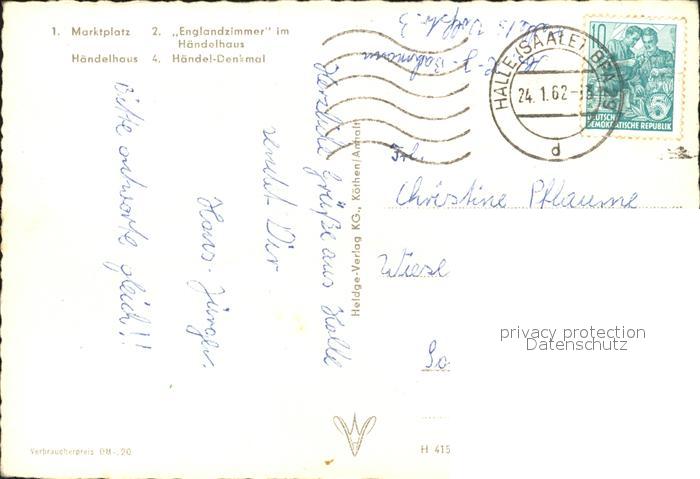 1. Marktplatz 2. „Englandzimmer" im
Händelhaus
Händelhaus 4. Händel-Denkmal
Herzliche Grüße aus Halle
sendet Dir
Hans-Jürgen.
Bitte antworte gleich!!
Heldge-Verlag KG., Köthen/Anhalt
HALLE (SAALE) BPA
24.1.62
d
10
5
DEUTSCHE
DEMOKRATISCHE REPUBLIK
Frl.
Christine Pflaume
Wiese
privacy protection
Datenschutz
Verbraucherpreis DM -,20
H 415